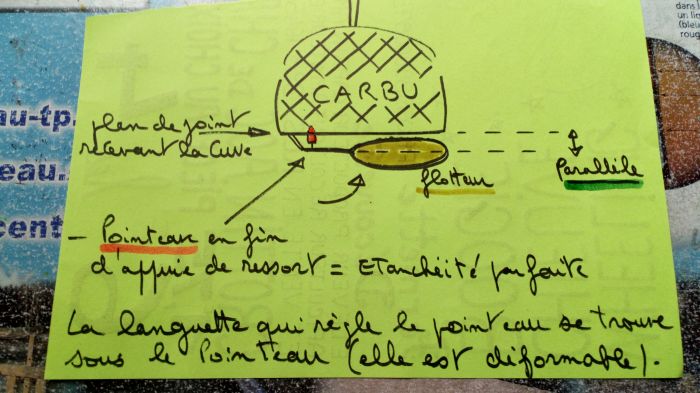 dans l
un liq
(bleu
roug
CARBU
au-tp.
eau.
cent
plan de joint
recevant la Cuve
flotteur
Parallèle
- Pointeau en fin
d'appuie de ressort = Etanchéité parfaite
La languette qui règle le pointeau se trouve
sous le Pointeau (elle est déformable).